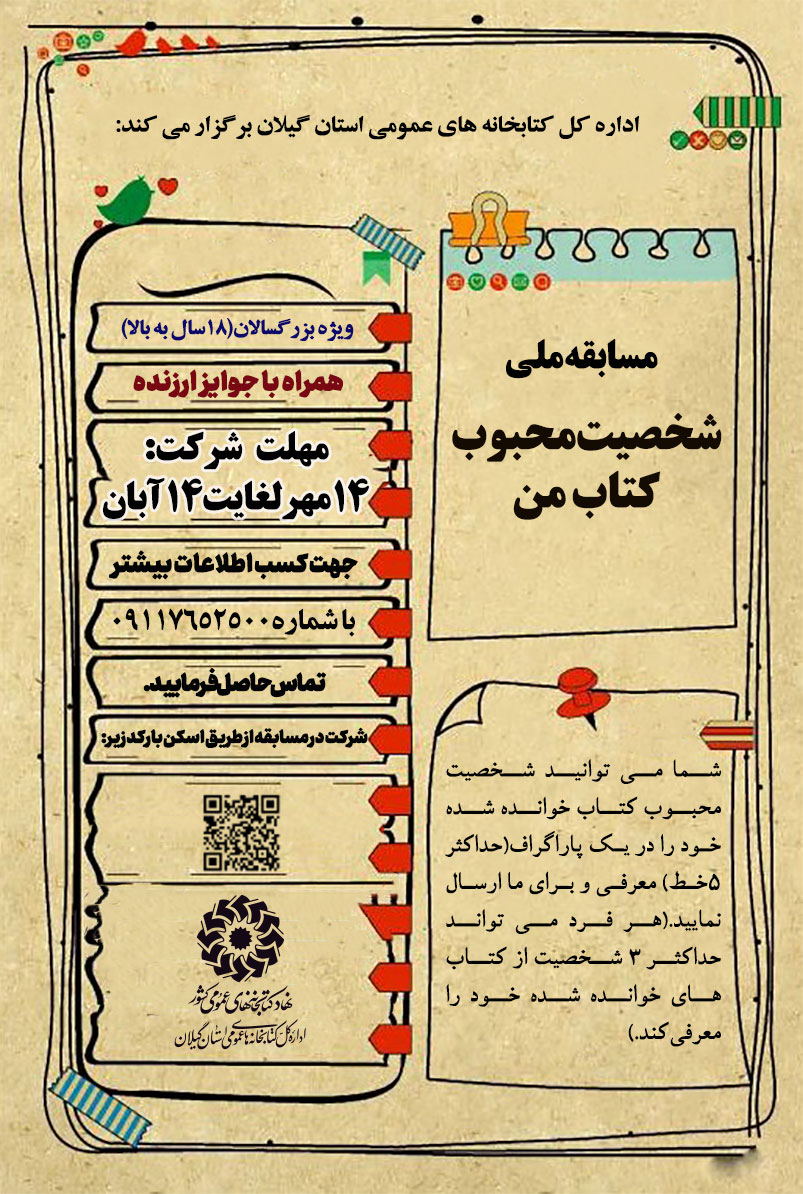 اداره کل کتابخانه های عمومی استان گیلان برگزار می کند:
مسابقه ملی
شخصیت محبوب
کتاب من
شما می توانید شخصیت
محبوب کتاب خوانده شده
خود را در یک پاراگراف(حداکثر
۵خط) معرفی و برای ما ارسال
نمایید.(هر فرد می تواند
حداکثر ۳ شخصیت از کتاب
های خوانده شده خود را
معرفی کند.)
ویژه بزرگسالان(۱۸سال به بالا)
همراه با جوایز ارزنده
مهلت شرکت:
۱۴مهر لغایت۱۴آبان
جهت کسب اطلاعات بیشتر
با شماره ۰۹۱۱۷۶۵۲۵۰۰
تماس حاصل فرمایید.
شرکت در مسابقه از طریق اسکن بارکد زیر:
نهاد کتابخانه‌های عمومی کشور
اداره کل کتابخانه های عمومی استان گیلان